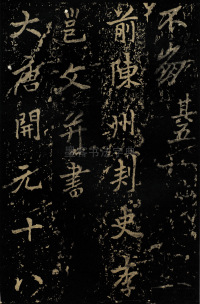 不 其五
前陳州刺史李
邕文并書
大唐開元十八